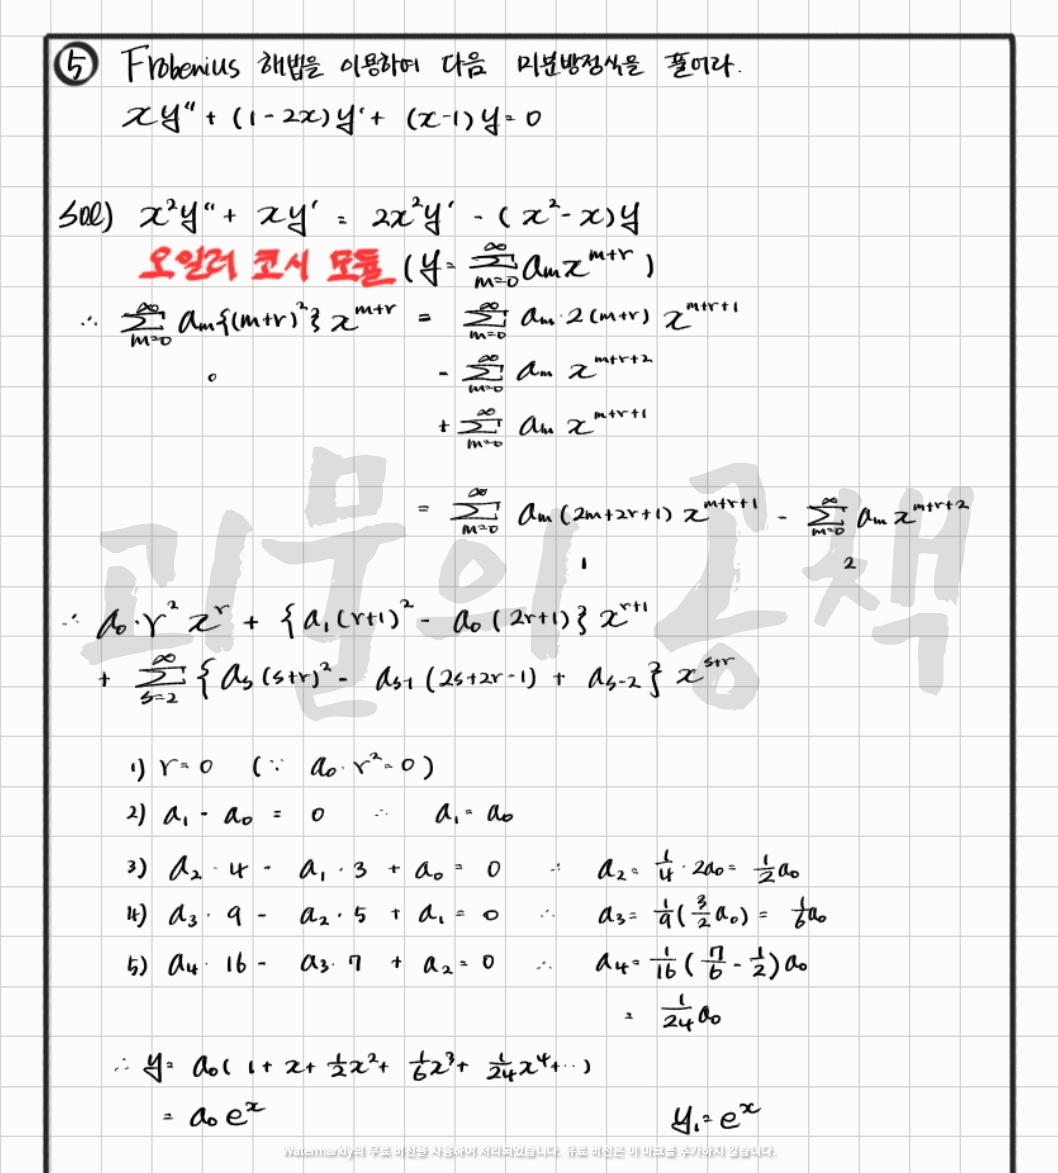 ⑤ Frobenius 해법을 이용하여 다음 미분방정식을 풀어라.
xy'' + (1-2x)y' + (x-1)y = 0
sol) x²y'' + xy' = 2x²y' - (x²-x)y
오일러 코시 모듈 (y = ∑_{m=0}^{∞} a_m x^{m+r})
∴ ∑_{m=0}^{∞} a_m{(m+r)²} x^{m+r} = ∑_{m=0}^{∞} a_m·2(m+r) x^{m+r+1}
0 - ∑_{m=0}^{∞} a_m x^{m+r+2}
+ ∑_{m=0}^{∞} a_m x^{m+r+1}
= ∑_{m=0}^{∞} a_m(2m+2r+1) x^{m+r+1} - ∑_{m=0}^{∞} a_m x^{m+r+2}
1 2
∴ a₀·r² x^r + {a₁(r+1)² - a₀(2r+1)} x^{r+1}
+ ∑_{s=2}^{∞} {a_s(s+r)² - a_{s-1}(2s+2r-1) + a_{s-2}} x^{s+r}
1) r=0 (∵ a₀·r²=0)
2) a₁ - a₀ = 0 ∴ a₁ = a₀
3) a₂·4 - a₁·3 + a₀ = 0 ∴ a₂ = 1/4·2a₀ = 1/2 a₀
4) a₃·9 - a₂·5 + a₁ = 0 ∴ a₃ = 1/9(3/2 a₀) = 1/6 a₀
5) a₄·16 - a₃·7 + a₂ = 0 ∴ a₄ = 1/16(7/6 - 1/2)a₀
= 1/24 a₀
∴ y = a₀(1 + x + 1/2 x² + 1/6 x³ + 1/24 x⁴ + ··)
= a₀e^x y₁ = e^x
괴물의 공책
Watermarkly의 무료 버전을 사용하여 처리되었습니다. 유료 버전은 이 마크를 추가하지 않습니다.